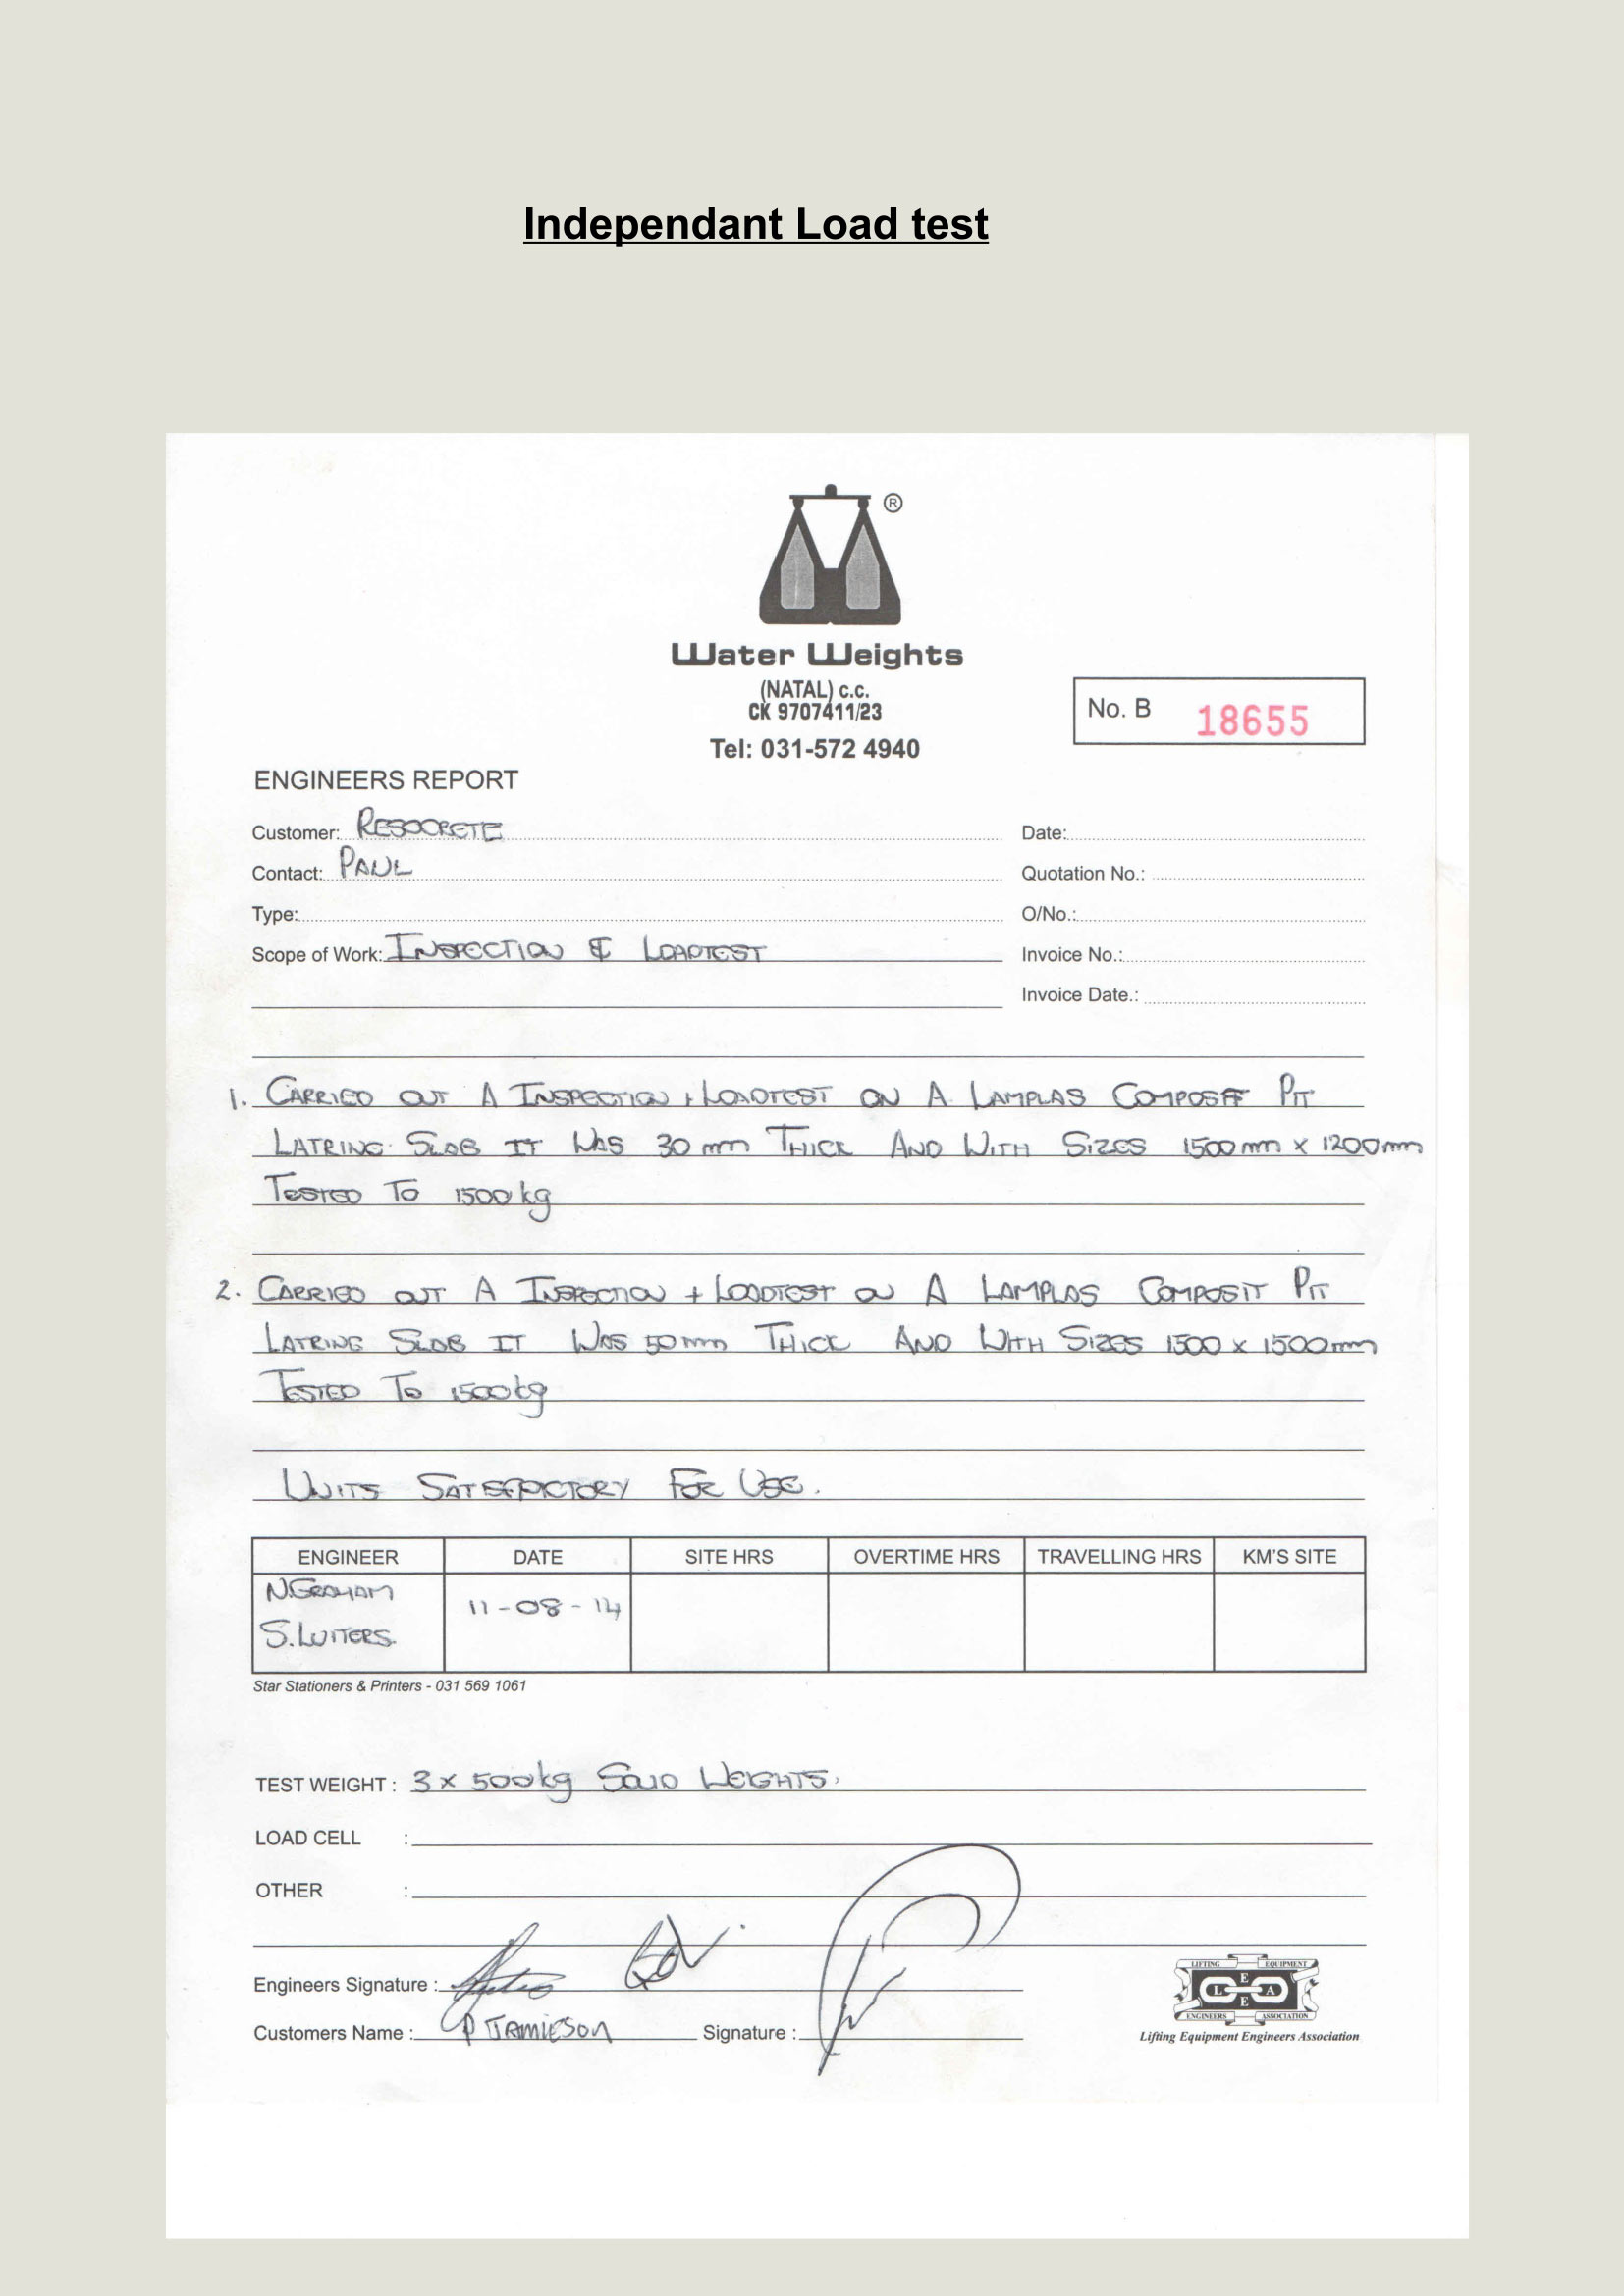 Independant Load test
®
Water Weights
(NATAL) c.c.
CK 9707411/23
Tel: 031-572 4940
No. B 18655
ENGINEERS REPORT
Customer: RESOCRETE
Date:
Contact: PAUL
Quotation No.:
Type:
O/No.:
Scope of Work: INSPECTION & LOADTEST
Invoice No.:
Invoice Date.:
1. CARRIED OUT A INSPECTION + LOADTEST ON A LAMPLAS PIT
LATRINE SLAB IT WAS 30mm THICK AND WITH SIZES 1500mm x 1200mm
TESTED TO 1500kg
2. CARRIED OUT A INSPECTION + LOADTEST ON A LAMPLAS COMPOSIT PIT
LATRINE SLAB IT WAS 50mm THICK AND WITH SIZES 1500 x 1500mm
TESTED TO 1500kg
UNITS FOR USE.
ENGINEER DATE SITE HRS OVERTIME HRS TRAVELLING HRS KM'S SITE
N.GRAHAM
11-08-14
S.LUITERS.
Star Stationers & Printers - 031 569 1061
TEST WEIGHT : 3 x 500kg SOLID WEIGHTS.
LOAD CELL :
OTHER :
Engineers Signature :
Customers Name : P JAMIESON Signature :
LIFTING EQUIPMENT
E
L A
E
ENGINEERS ASSOCIATION
Lifting Equipment Engineers Association